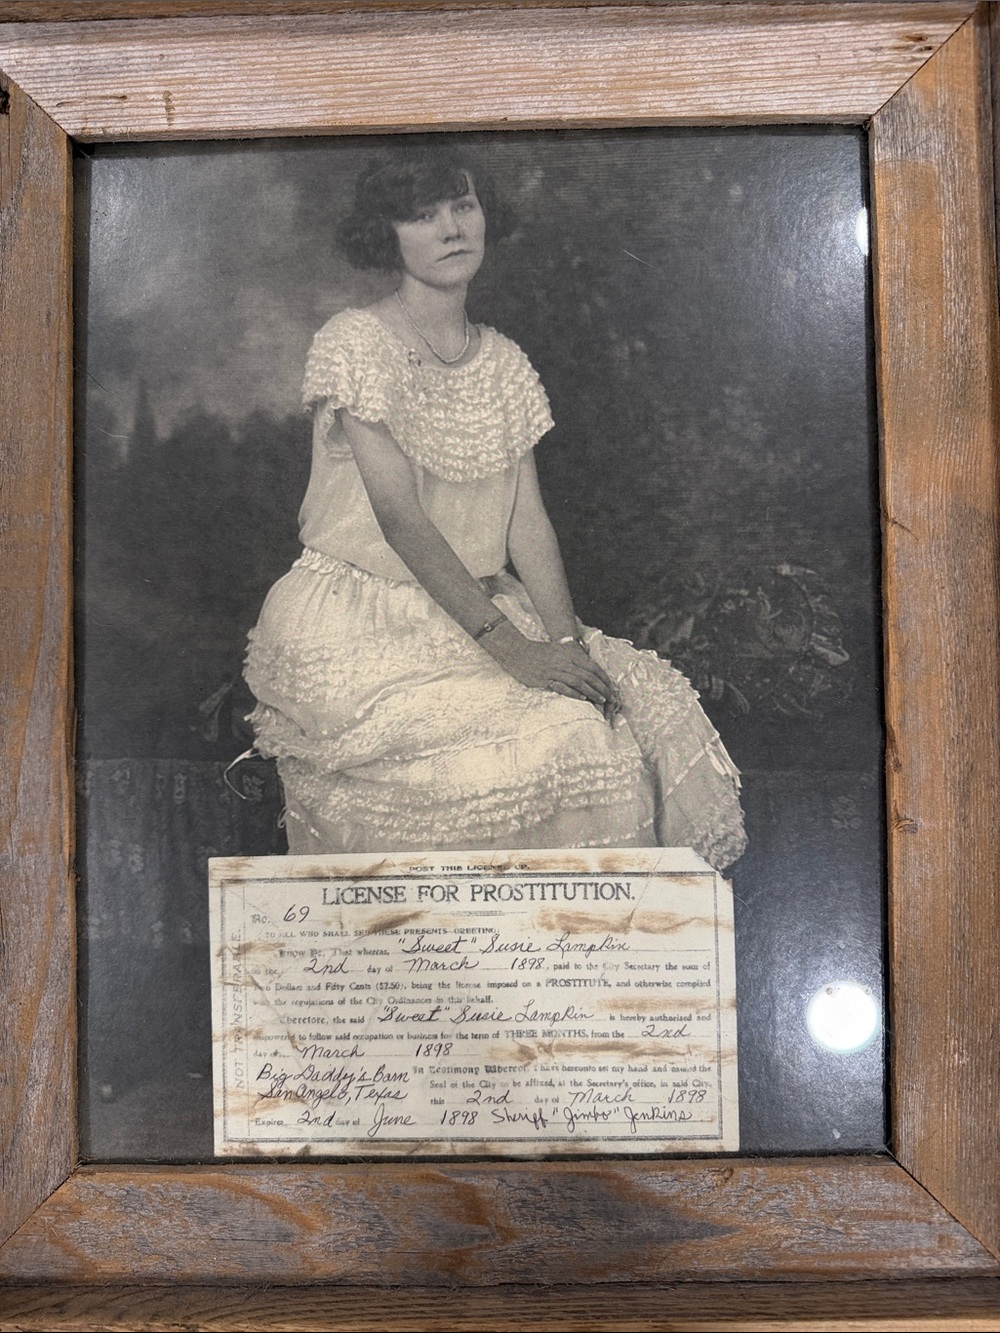 POST THIS LICENSE UP.
LICENSE FOR PROSTITUTION.
No. 69
TO ALL WHO SHALL SEE THESE PRESENTS GREETING:
Know Ye, That whereas, "Sweet" Susie Lampkin
on the 2nd day of March 1898, paid to the City Secretary the sum of
Two Dollars and Fifty Cents ($2.50), being the license imposed on a PROSTITUTE, and otherwise complied
with the regulations of the City Ordinances in this behalf.
Therefore, the said "Sweet" Susie Lampkin is hereby authorised and
empowered to follow said occupation or business for the term of THREE MONTHS, from the 2nd
day of March 1898
Big Daddy's Barn
San Angelo, Texas
In Testimony Whereof, I have hereunto set my hand and caused the
Seal of the City to be affixed, at the Secretary's office, in said City,
this 2nd day of March 1898
Expires 2nd day of June 1898 Sheriff "Jimbo" Jenkins
NOT TRANSFERABLE.